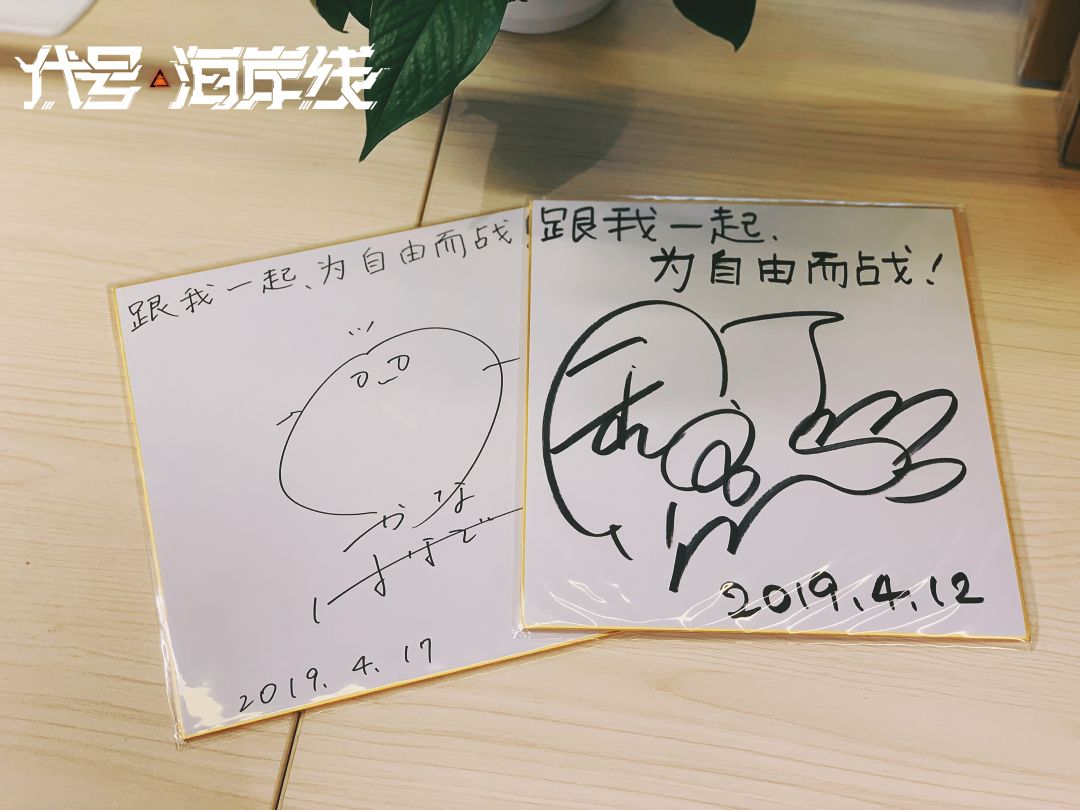 代号海岸线
跟我一起、为自由而战
かな
はなで
2019.4.17
跟我一起、
为自由而战！
2019.4.12